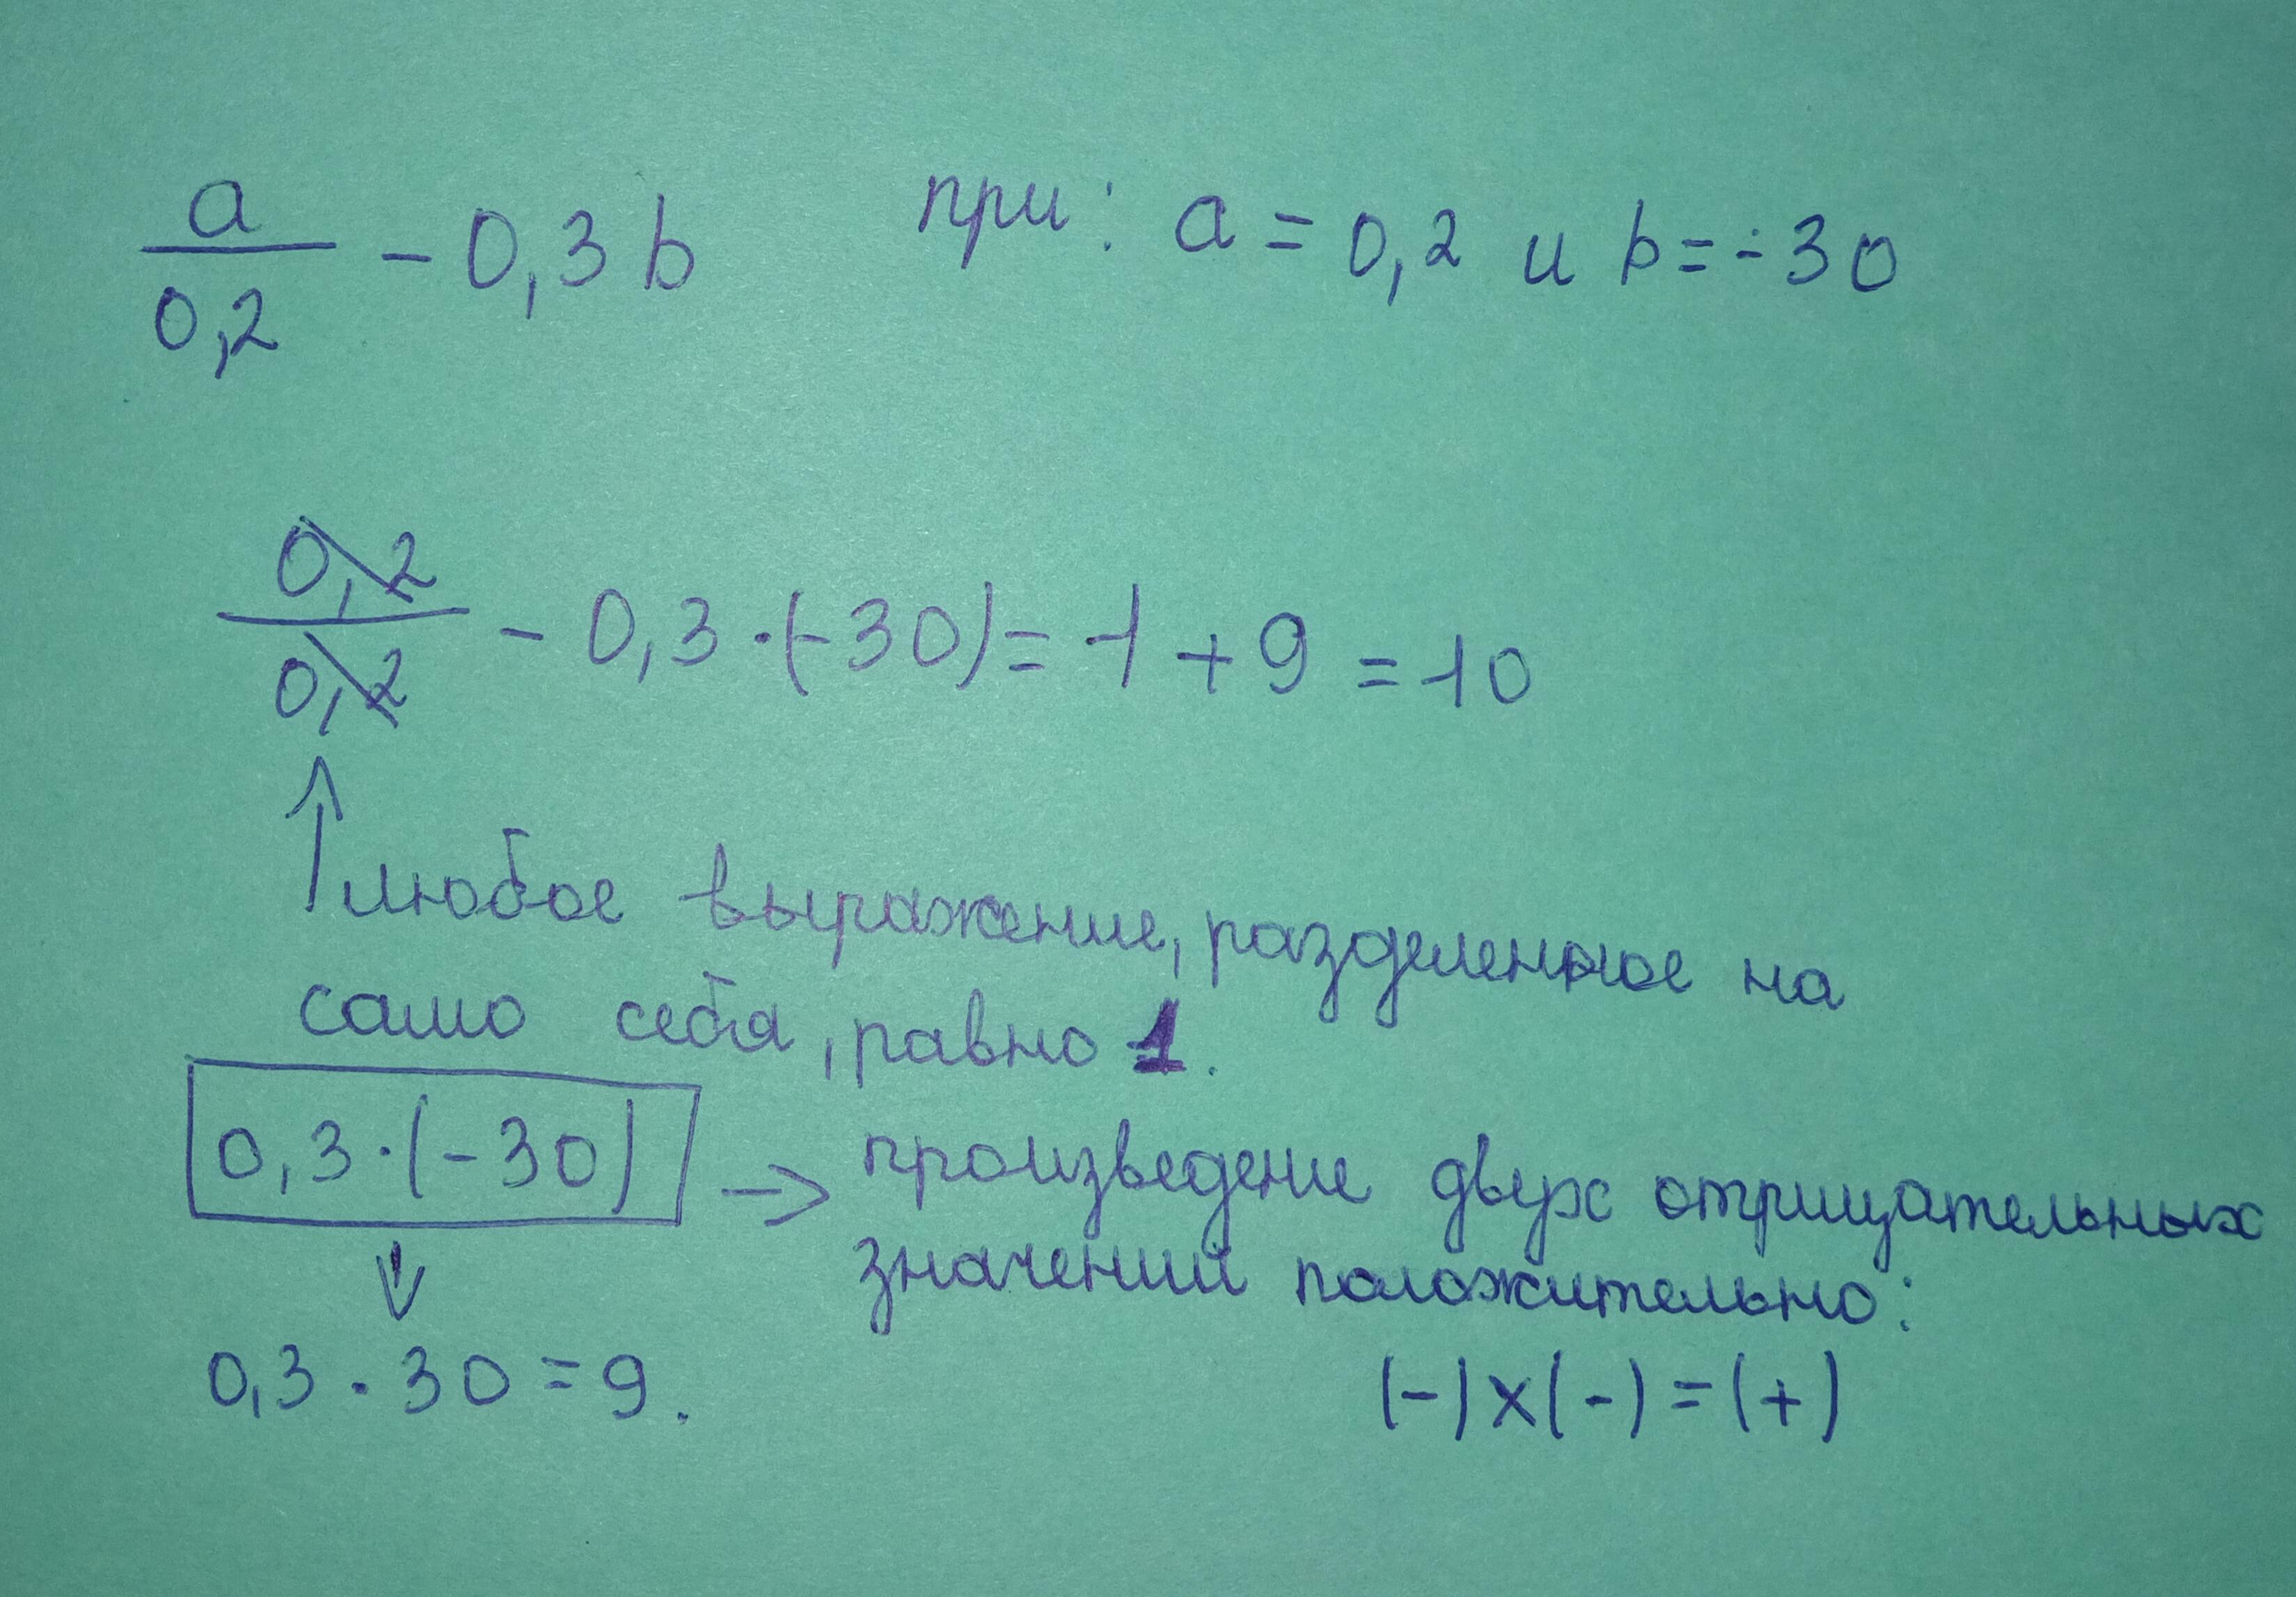 a/0,2 - 0,3b при: a = 0,2 и b = -30
0,2/0,2 - 0,3·(-30) = 1 + 9 = 10
↑ любое выражение, разделенное на
само себя, равно 1.
0,3·(-30) → произведение двух отрицательных
значений положительно:
↓
0,3 · 30 = 9. (-)x(-) = (+)